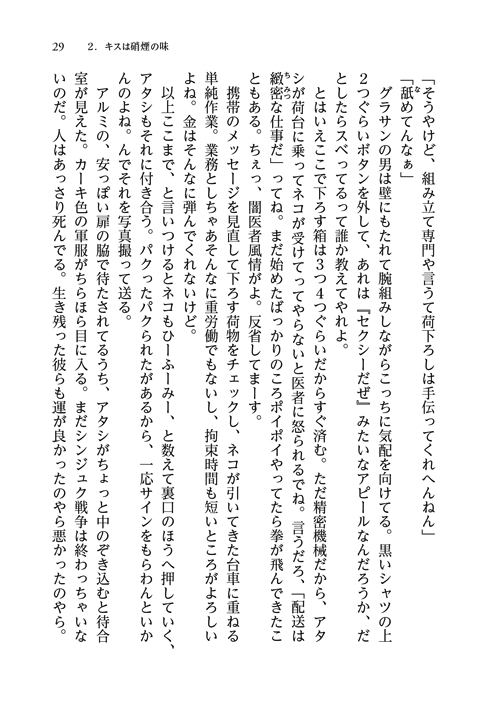 29　2．キスは硝煙の味
「そうやけど、組み立て専門や言うて荷下ろしは手伝ってくれへんねん」
「舐めてんなぁ」
　グラサンの男は壁にもたれて腕組みしながらこっちに気配を向けてる。黒いシャツの上
2つぐらいボタンを外して、あれは『セクシーだぜ』みたいなアピールなんだろうか、だ
としたらスベってるって誰か教えてやれよ。
　とはいえここで下ろす箱は3つ4つぐらいだからすぐ済む。ただ精密機械だから、アタ
シが荷台に乗ってネコが受けてってやらないと医者に怒られるでね。言うだろ、「配送は
緻密な仕事だ」ってね。まだ始めたばっかりのころポイポイやってたら拳が飛んできたこ
ともある。ちぇっ、闇医者風情がよ。反省してまーす。
　携帯のメッセージを見直して下ろす荷物をチェックし、ネコが引いてきた台車に重ねる
単純作業。業務としちゃあそんなに重労働でもないし、拘束時間も短いところがよろしい
よね。金はそんなに弾んでくれないけど。
　以上ここまで、と言いつけるとネコもひーふーみー、と数えて裏口のほうへ押していく、
アタシもそれに付き合う。パクったパクられたがあるから、一応サインをもらわんといか
んのよね。んでそれを写真撮って送る。
　アルミの、安っぽい扉の脇で待たされてるうち、アタシがちょっと中のぞき込むと待合
室が見えた。カーキ色の軍服がちらほら目に入る。まだシンジュク戦争は終わっちゃいな
いのだ。人はあっさり死んでる。生き残った彼らも運が良かったのやら悪かったのやら。